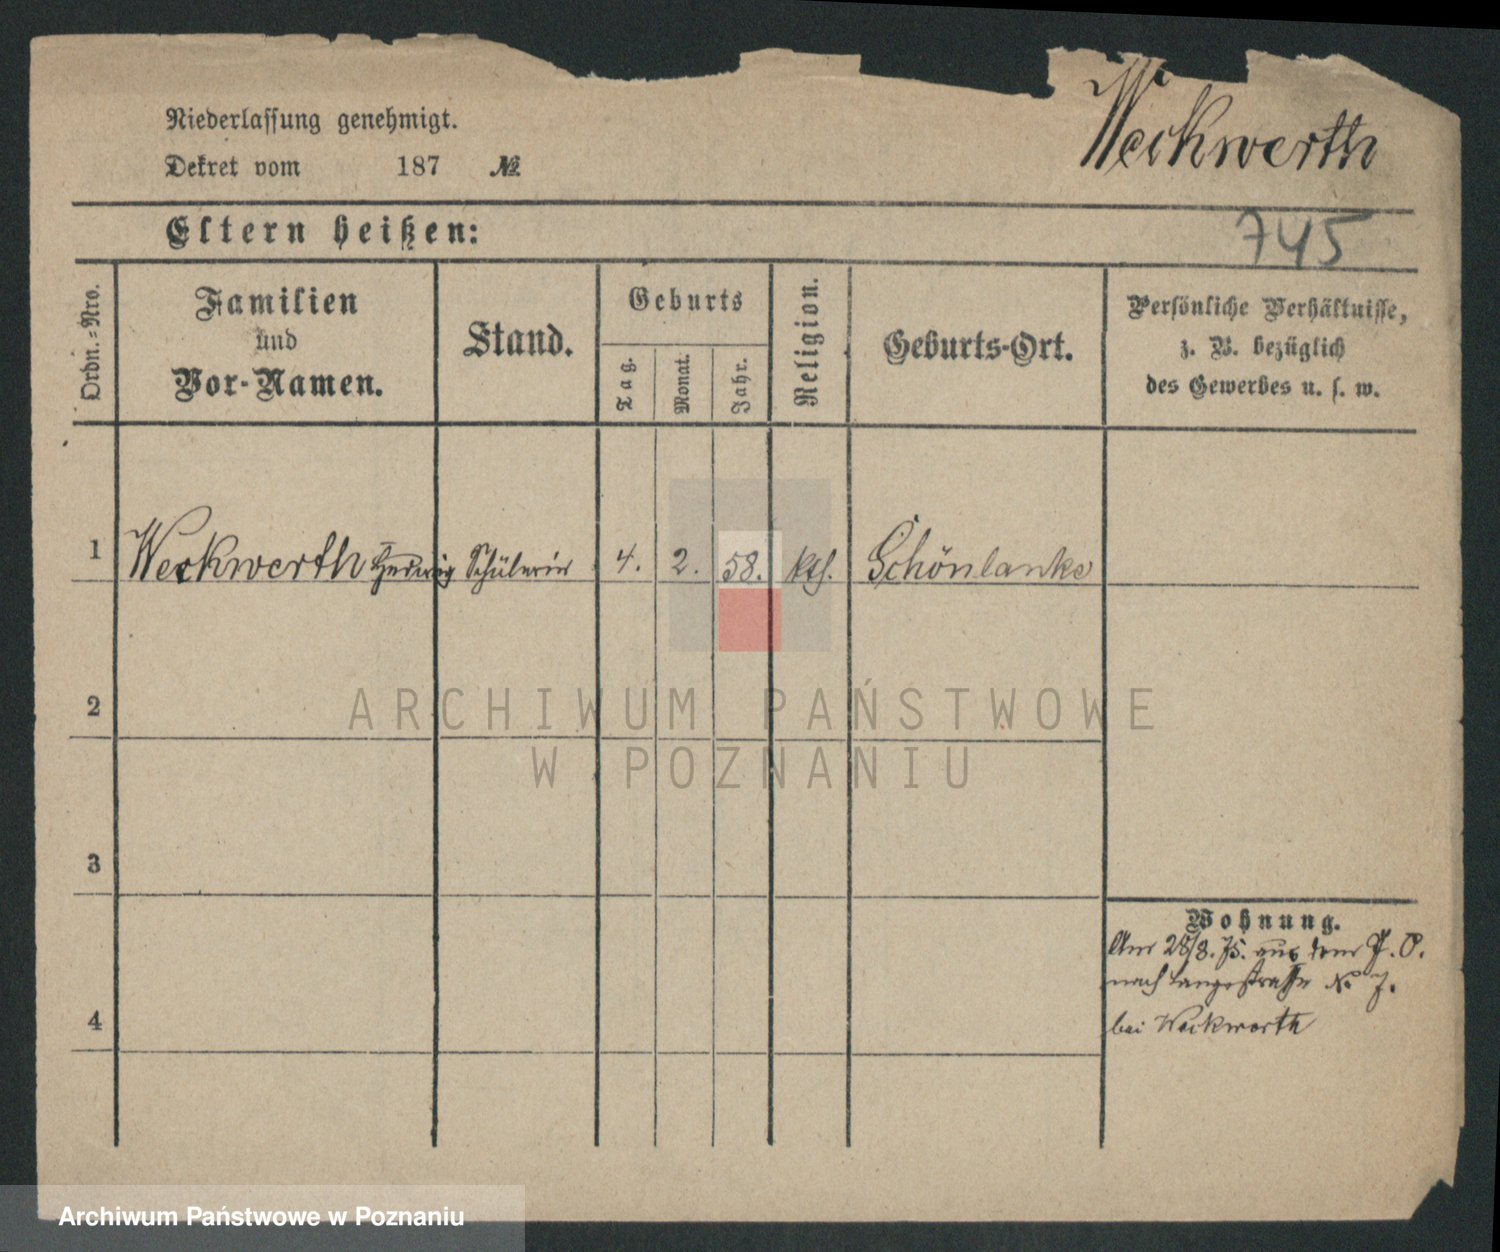 Weckwerth
Niederlassung genehmigt.
Dekret vom 187 №
745
Eltern heißen:
Ordn.-Nro.
Familien
und
Vor-Namen.
Stand.
Geburts
Tag.
Monat.
Jahr.
Religion.
Geburts-Ort.
Persönliche Verhältnisse,
z. B. bezüglich
des Gewerbes u. s. w.
1 Weckwerth Hedwig Schülerin 4. 2. 58. kth. Schönlanke
2
3
4
Wohnung.
Am 28/8. 75. aus dem P. O.
nach Langestraße No 7.
bei Weckwerth
ARCHIWUM PAŃSTWOWE
W POZNANIU
Archiwum Państwowe w Poznaniu